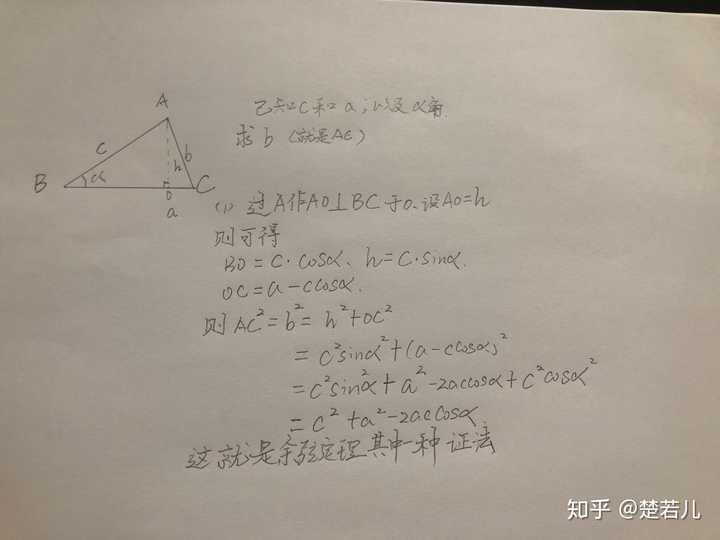 A
c
b
h
α
B
O
C
a
已知c和a,以及α角
求b(就是AC)
(1) 过A作AO⊥BC于O,设AO=h
则可得
BO=c·cosα、h=c·sinα.
OC=a-ccosα.
则AC²=b²=h²+OC²
=c²sinα²+(a-ccosα)²
=c²sin²α+a²-2accosα+c²cosα²
=c²+a²-2accosα
这就是余弦定理其中一种证法
知乎 @楚若儿